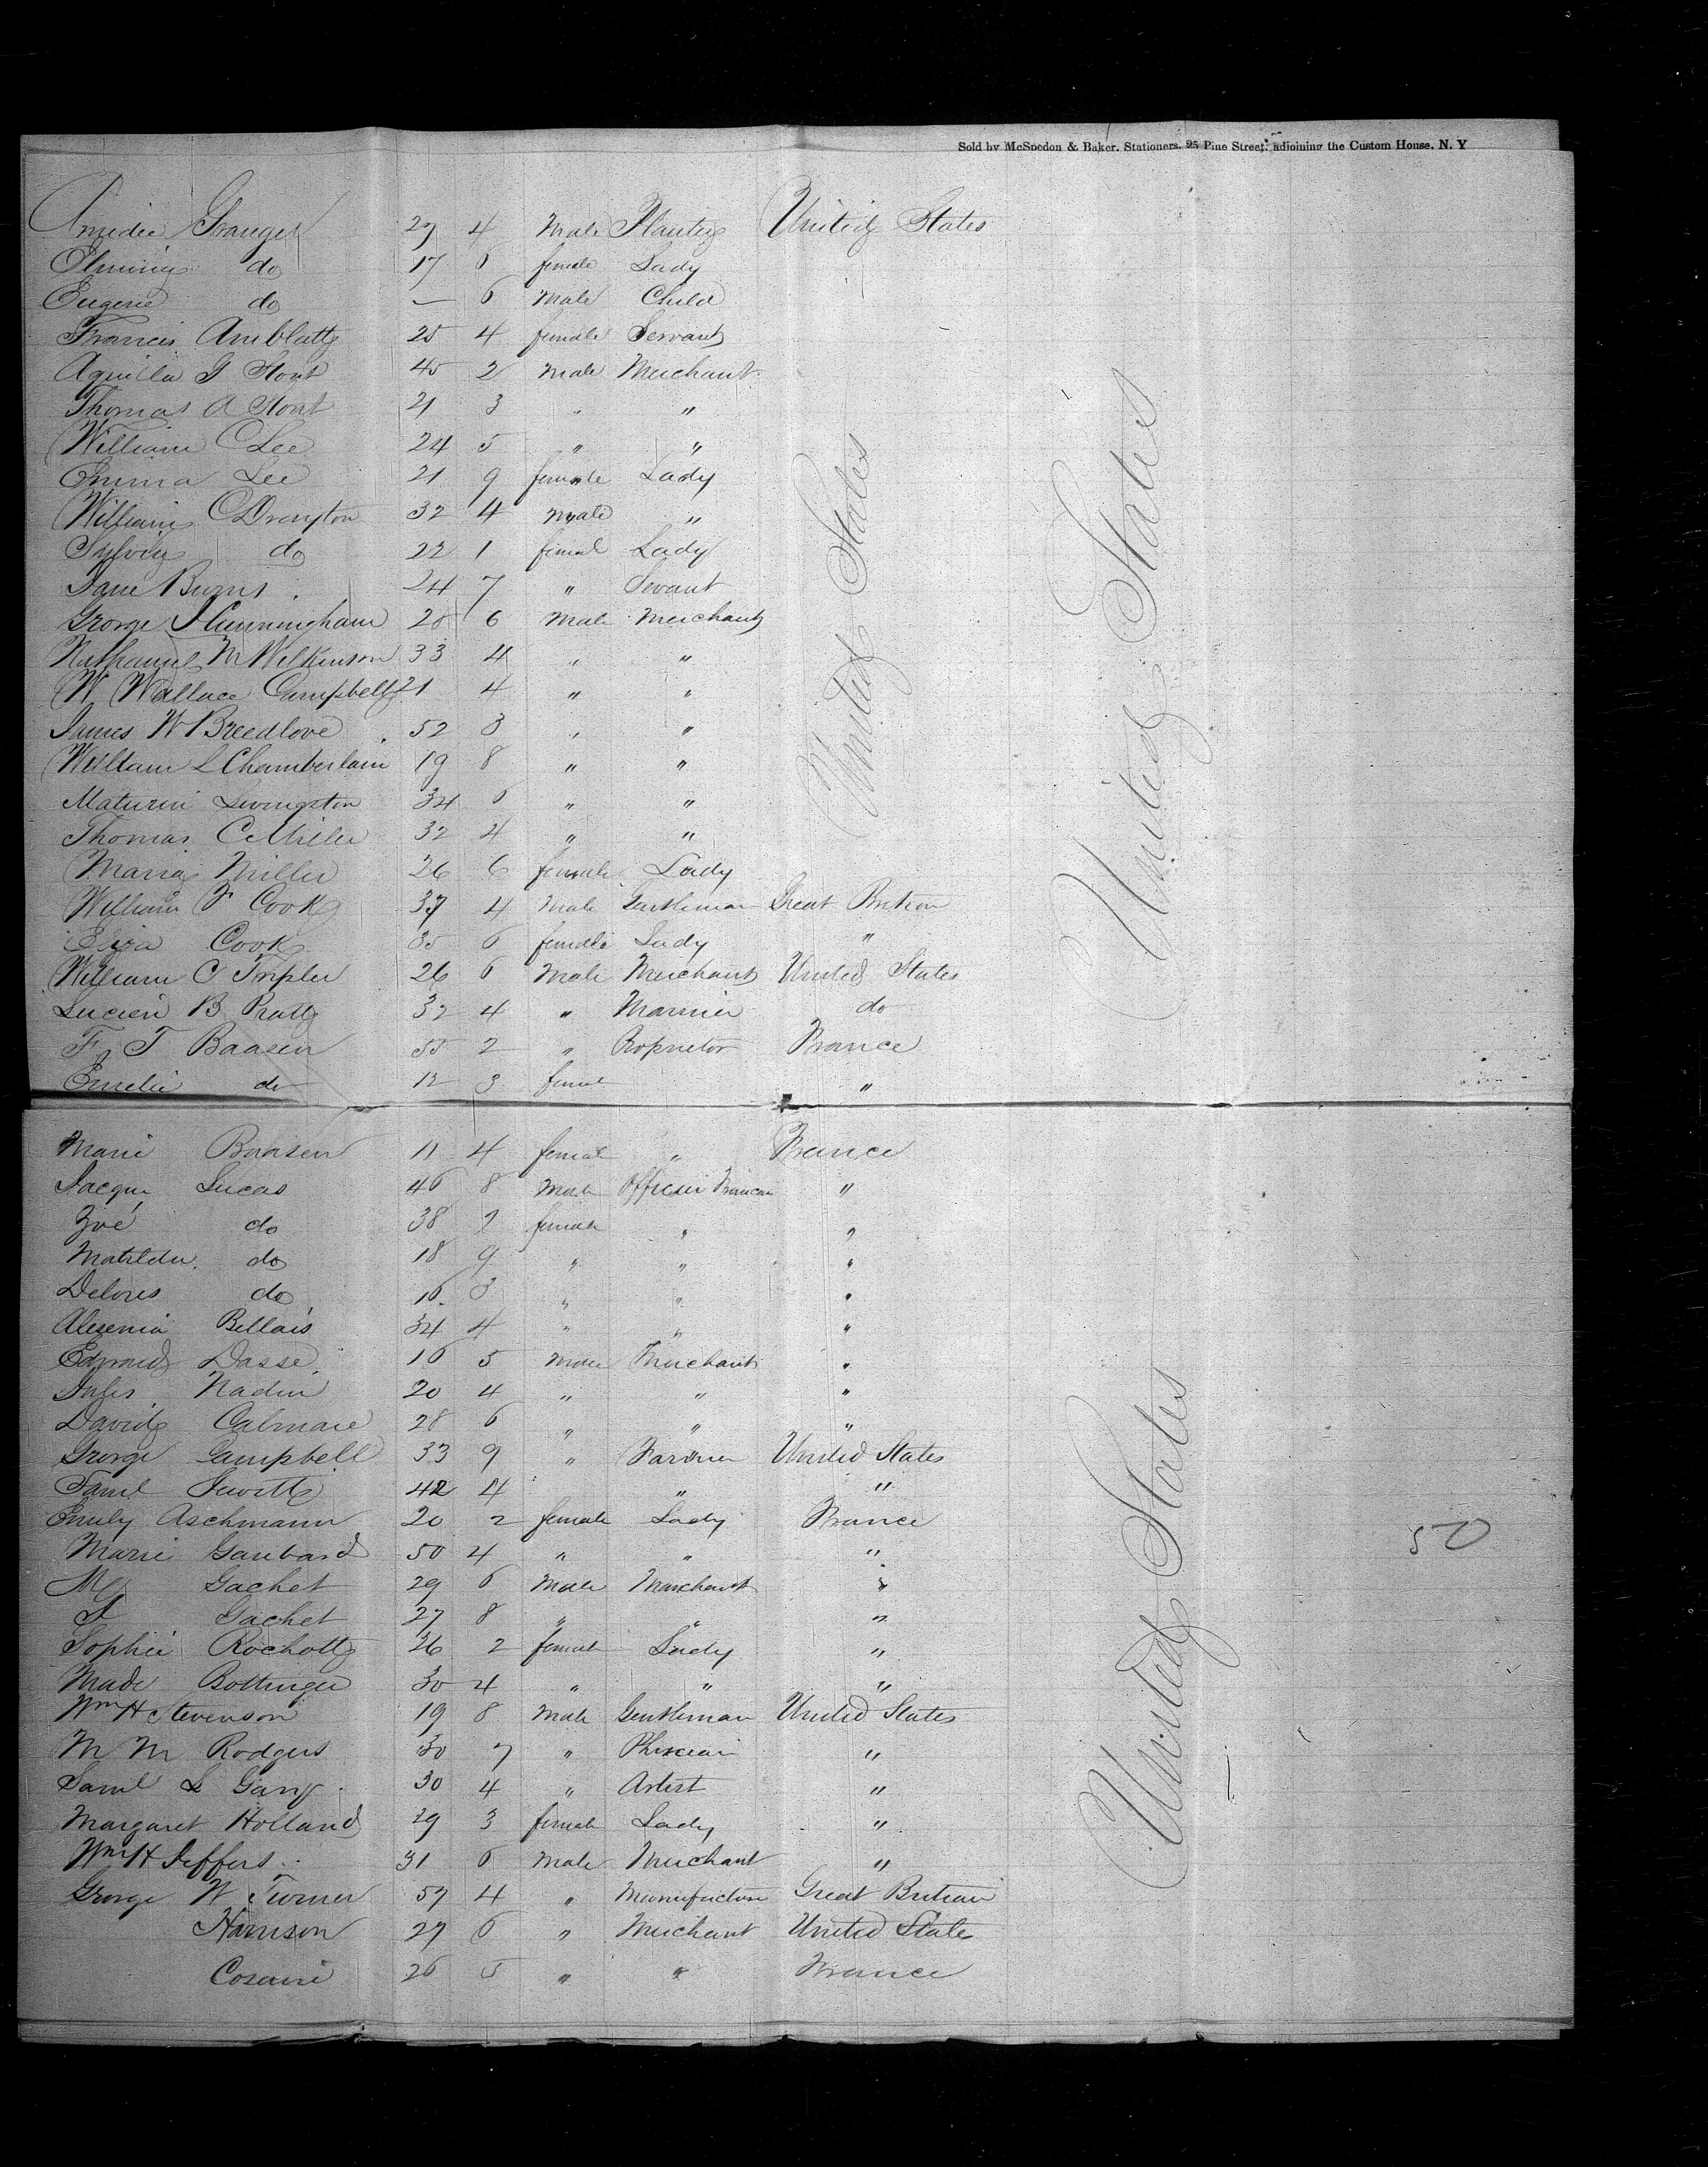 Sold by McSpedon & Baker, Stationers, 25 Pine Street, adjoining the Custom House, N. Y
Amidee Granger 27 4 Male Planter United States
do 17 6 female Lady
Eugene do — 6 Male Child
Francis 25 4 female Servant
Aquilla G Stout 45 2 Male Merchant
Thomas A Stout 21 3 " "
William C Lee 24 5 " "
Emma Lee 21 9 female Lady
William C Drayton 32 4 male "
Sylvia do 22 1 femal Lady
Jane Burns 24 7 " Servant
George J Cunningham 28 6 Male Merchant
Nathaniel M Wilkinson 33 4 " "
W Wallace Campbell 21 4 " "
James W Breedlove 52 3 " "
William L Chamberlain 19 8 " "
Maturin Livingston 34 6 " "
Thomas C Miller 32 4 " "
Maria Miller 26 6 female Lady
William F Cook 37 4 Male Gentleman Great Britain
Eliza Cook 35 6 female Lady "
William C Tripler 26 6 Male Merchant United States
Lucien B Pratt 32 4 " Marinier do
F. T Baasen 55 2 " Proprietor France
Emelie do 12 3 femal "
United States
United States
Marie Baasen 11 4 femal " France
Jacque Lucas 46 8 Male Officier Francais "
Zoé do 38 7 female " "
Matilda do 18 9 " " "
Delores do 16 3 " " "
Bellais 34 4 " " "
Edward Dasse 16 5 Male Merchant "
Jules Nadin 20 4 " " "
David Calmare 28 6 " " "
George Campbell 33 9 " Farmer United States
Saml Jewett 42 4 " "
Emily Aschmann 20 2 female Lady France
Marie Gaubard 50 4 " " "
M Gachet 29 6 Male Marchant "
Gachet 27 8 " " "
Sophie Rochott 26 2 female Lady "
Made Bottinger 30 4 " " "
Wm H Stevenson 19 8 Male Gentleman United States
M M Rodgers 30 7 " "
Saml L 30 4 " Artist "
Margaret Holland 29 3 female Lady "
Wm H Jeffers 31 6 Male Merchant "
George W Turner 57 4 " Manufacturer Great Britain
Harrison 27 6 " Merchant United State
26 5 " " France
United States
50